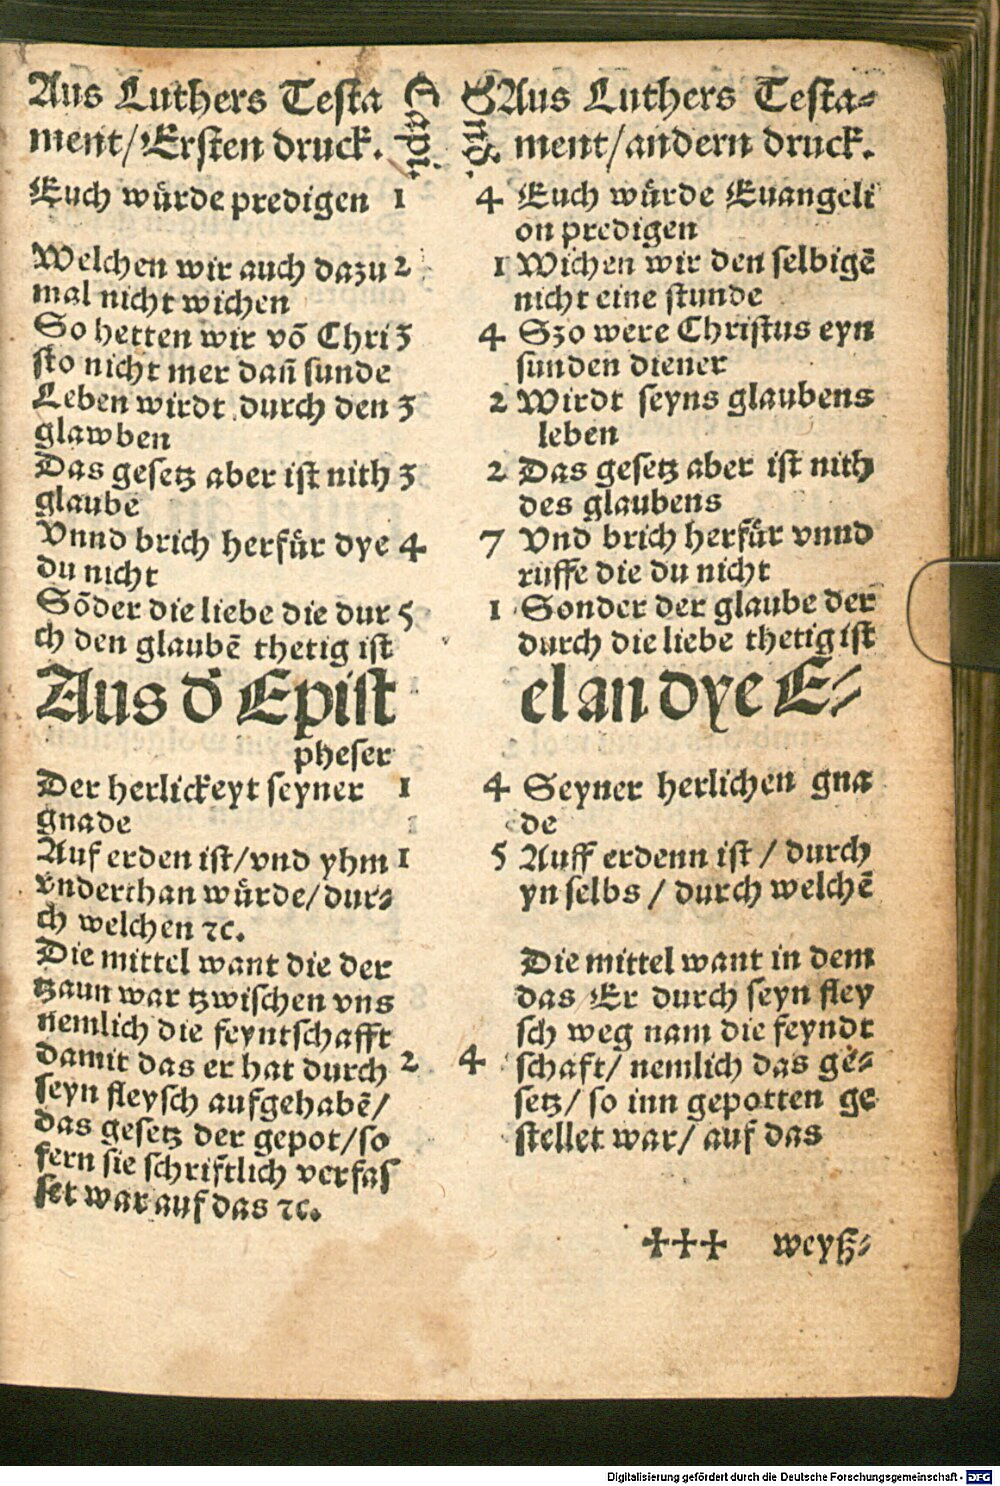 Aus Luthers Testa
ment/Ersten druck.
Capi.
Euch würde predigen 1
Welchen wir auch dazu 2
mal nicht wichen
So hetten wir vō Chri 3
sto nicht mer dañ sunde
Leben wirdt durch den 3
glawben
Das gesetz aber ist nith 3
glaube
Vnnd brich herfür dye 4
du nicht
Sōder die liebe die dur 5
ch den glaubē thetig ist
Aus d̄ Epist
pheser
Der herlickeyt seyner 1
gnade
Auf erden ist/vnd yhm 1
vnderthan würde/dur⸗
ch welchen ⁊c.
Die mittel want die der
tzaun war tzwischen vns
nemlich die feyntschafft
damit das er hat durch 2
seyn fleysch aufgehabē/
das gesetz der gepot/so
fern sie schriftlich verfas
set war auf das ⁊c.
Aus Luthers Testa⸗
ment/andern druck.
4 Euch würde Euangeli
on predigen
1 Wichen wir den selbigē
nicht eine stunde
4 Szo were Christus eyn
sunden diener
2 Wirdt seyns glaubens
leben
2 Das gesetz aber ist nith
des glaubens
7 Vnd brich herfür vnnd
ruffe die du nicht
1 Sonder der glaube der
durch die liebe thetig ist
el an dye E⸗
4 Seyner herlichen gna
de
5 Auff erdenn ist / durch
yn selbs / durch welchē
Die mittel want in dem
das Er durch seyn fley
sch weg nam die feyndt
4 schaft/ nemlich das ge⸗
setz/ so inn gepotten ge
stellet war/ auf das
✢✢✢ weysz⸗
Digitalisierung gefördert durch die Deutsche Forschungsgemeinschaft - DFG